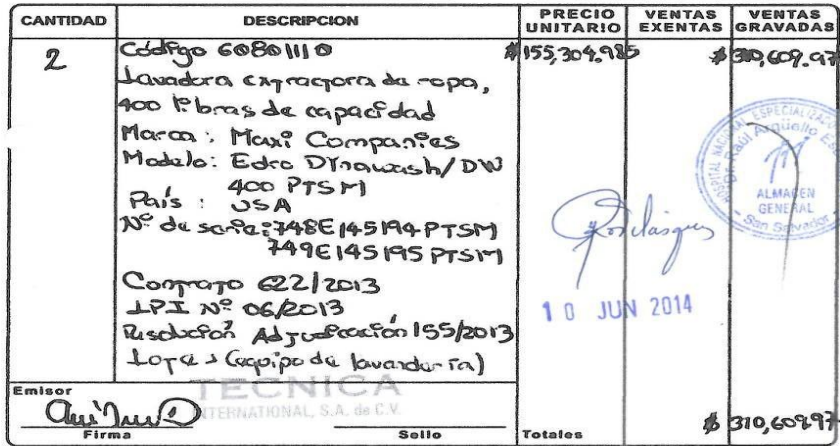 CANTIDAD DESCRIPCION PRECIO UNITARIO VENTAS EXENTAS VENTAS GRAVADAS
2 Código 60801110 $155,304.985 $310,609.97
Lavadora extractora de ropa,
400 libras de capacidad
Marca: Maxi Companies
Modelo: Edro DYnawash/DW
400 PTSM
País: USA
Nº de serie: 748E145194PTSM
749E145195PTSM
Contrato 622/2013
LPI Nº 06/2013
Resolución Adjudicación 155/2013
Lote (equipo de lavandería)
HOSPITAL NACIONAL ESPECIALIZADO
Dr. Raúl Argüello
ALMACEN
GENERAL
San Salvador
10 JUN 2014
TECNICA
INTERNATIONAL, S.A. de C.V.
Emisor
Firma Sello Totales $310,609.97